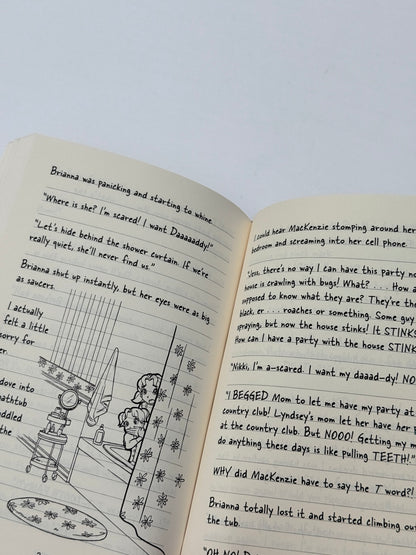 Brianna was panicking and starting to whine.
"Where is she? I'm scared! I want Daaaaaddy!"
"Let's hide behind the shower curtain. If we're
really quiet, she'll never find us."
Brianna shut up instantly, but her eyes were as big
as saucers.
I actually
felt a little
sorry for
dove into
bathtub
the
I could hear MacKenzie stomping around her
bedroom and screaming into her cell phone.
"Jess, there's no way I can have this party
house is crawling with bugs! What? . . . How
supposed to know what they are? They're
black, er . . . roaches or something. Some guy
spraying, but now the house stinks! It STINKS
How can I have a party with the house
"Nikki, I'm a-scared. I want my daaad-dy!
"I BEGGED Mom to let me have my party at
country club! Lyndsey's mom let her have her
at the country club. But NOOO! Getting my
do anything these days is like pulling TEETH!"
WHY did MacKenzie have to say the T word?!
Brianna totally lost it and started climbing
the tub.
"OH NO!